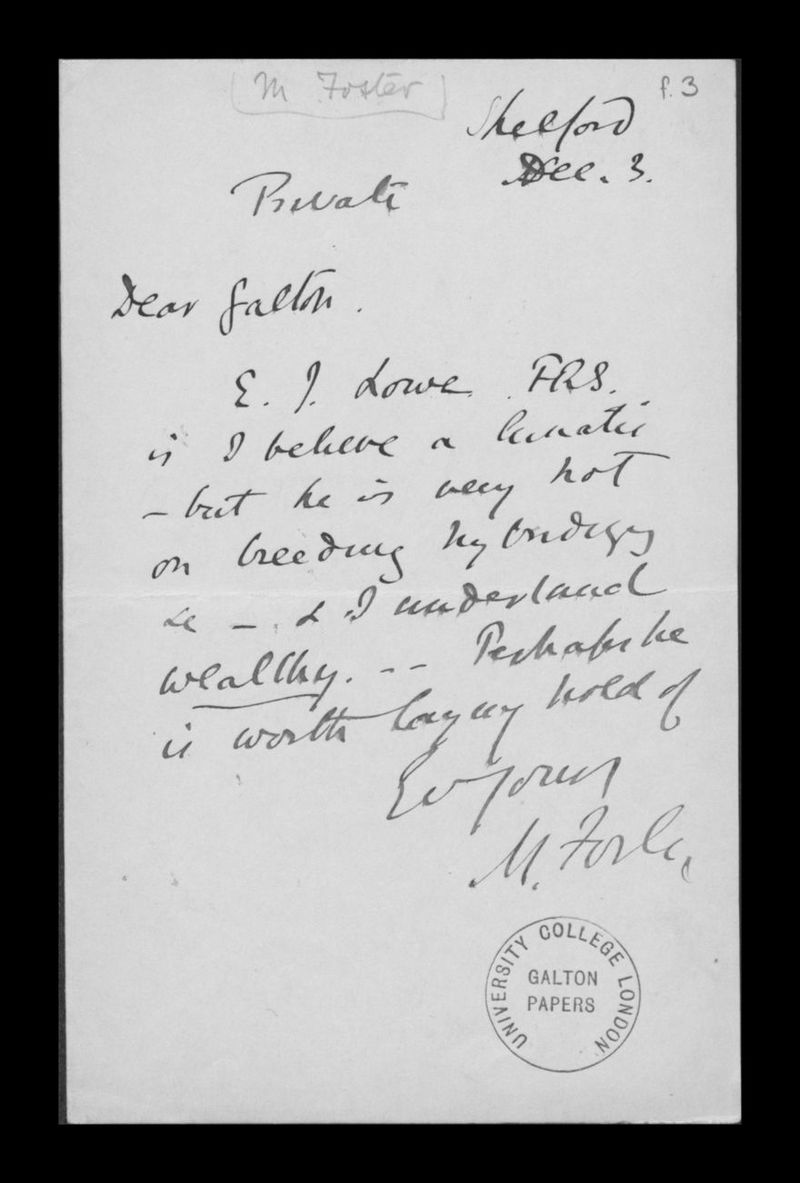 (M Foster)
f. 3
Shelford
Dec. 3.
Private
Dear Galton.
E. J. Lowe FRS.
is I believe a lunatic
- but he is very hot
on breeding hybridizing
&c - & I understand
wealthy. -- Perhaps he
is worth laying hold of
Ev yours
M. Foster
UNIVERSITY COLLEGE LONDON
GALTON
PAPERS